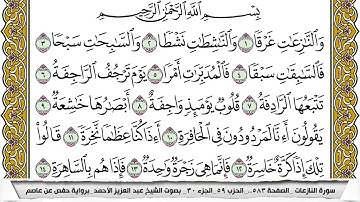 بِسْمِ ٱللَّهِ ٱلرَّحْمَٰنِ ٱلرَّحِيمِ
وَٱلنَّٰزِعَٰتِ غَرْقًا ١ وَٱلنَّٰشِطَٰتِ نَشْطًا ٢ وَٱلسَّٰبِحَٰتِ سَبْحًا ٣
فَٱلسَّٰبِقَٰتِ سَبْقًا ٤ فَٱلْمُدَبِّرَٰتِ أَمْرًا ٥ يَوْمَ تَرْجُفُ ٱلرَّاجِفَةُ ٦
تَتْبَعُهَا ٱلرَّادِفَةُ ٧ قُلُوبٌ يَوْمَئِذٍ وَاجِفَةٌ ٨ أَبْصَٰرُهَا خَٰشِعَةٌ ٩
يَقُولُونَ أَءِنَّا لَمَرْدُودُونَ فِى ٱلْحَافِرَةِ ١٠ أَءِذَا كُنَّا عِظَٰمًا نَّخِرَةً ١١ قَالُوا۟
تِلْكَ إِذًا كَرَّةٌ خَاسِرَةٌ ١٢ فَإِنَّمَا هِىَ زَجْرَةٌ وَٰحِدَةٌ ١٣ فَإِذَا هُم بِٱلسَّاهِرَةِ ١٤
سورة النازعات _الصفحة ٥٨٣_ الحزب ٥٩_الجزء ٣٠_ بصوت الشيخ عبد العزيز الأحمد_برواية حفص عن عاصم